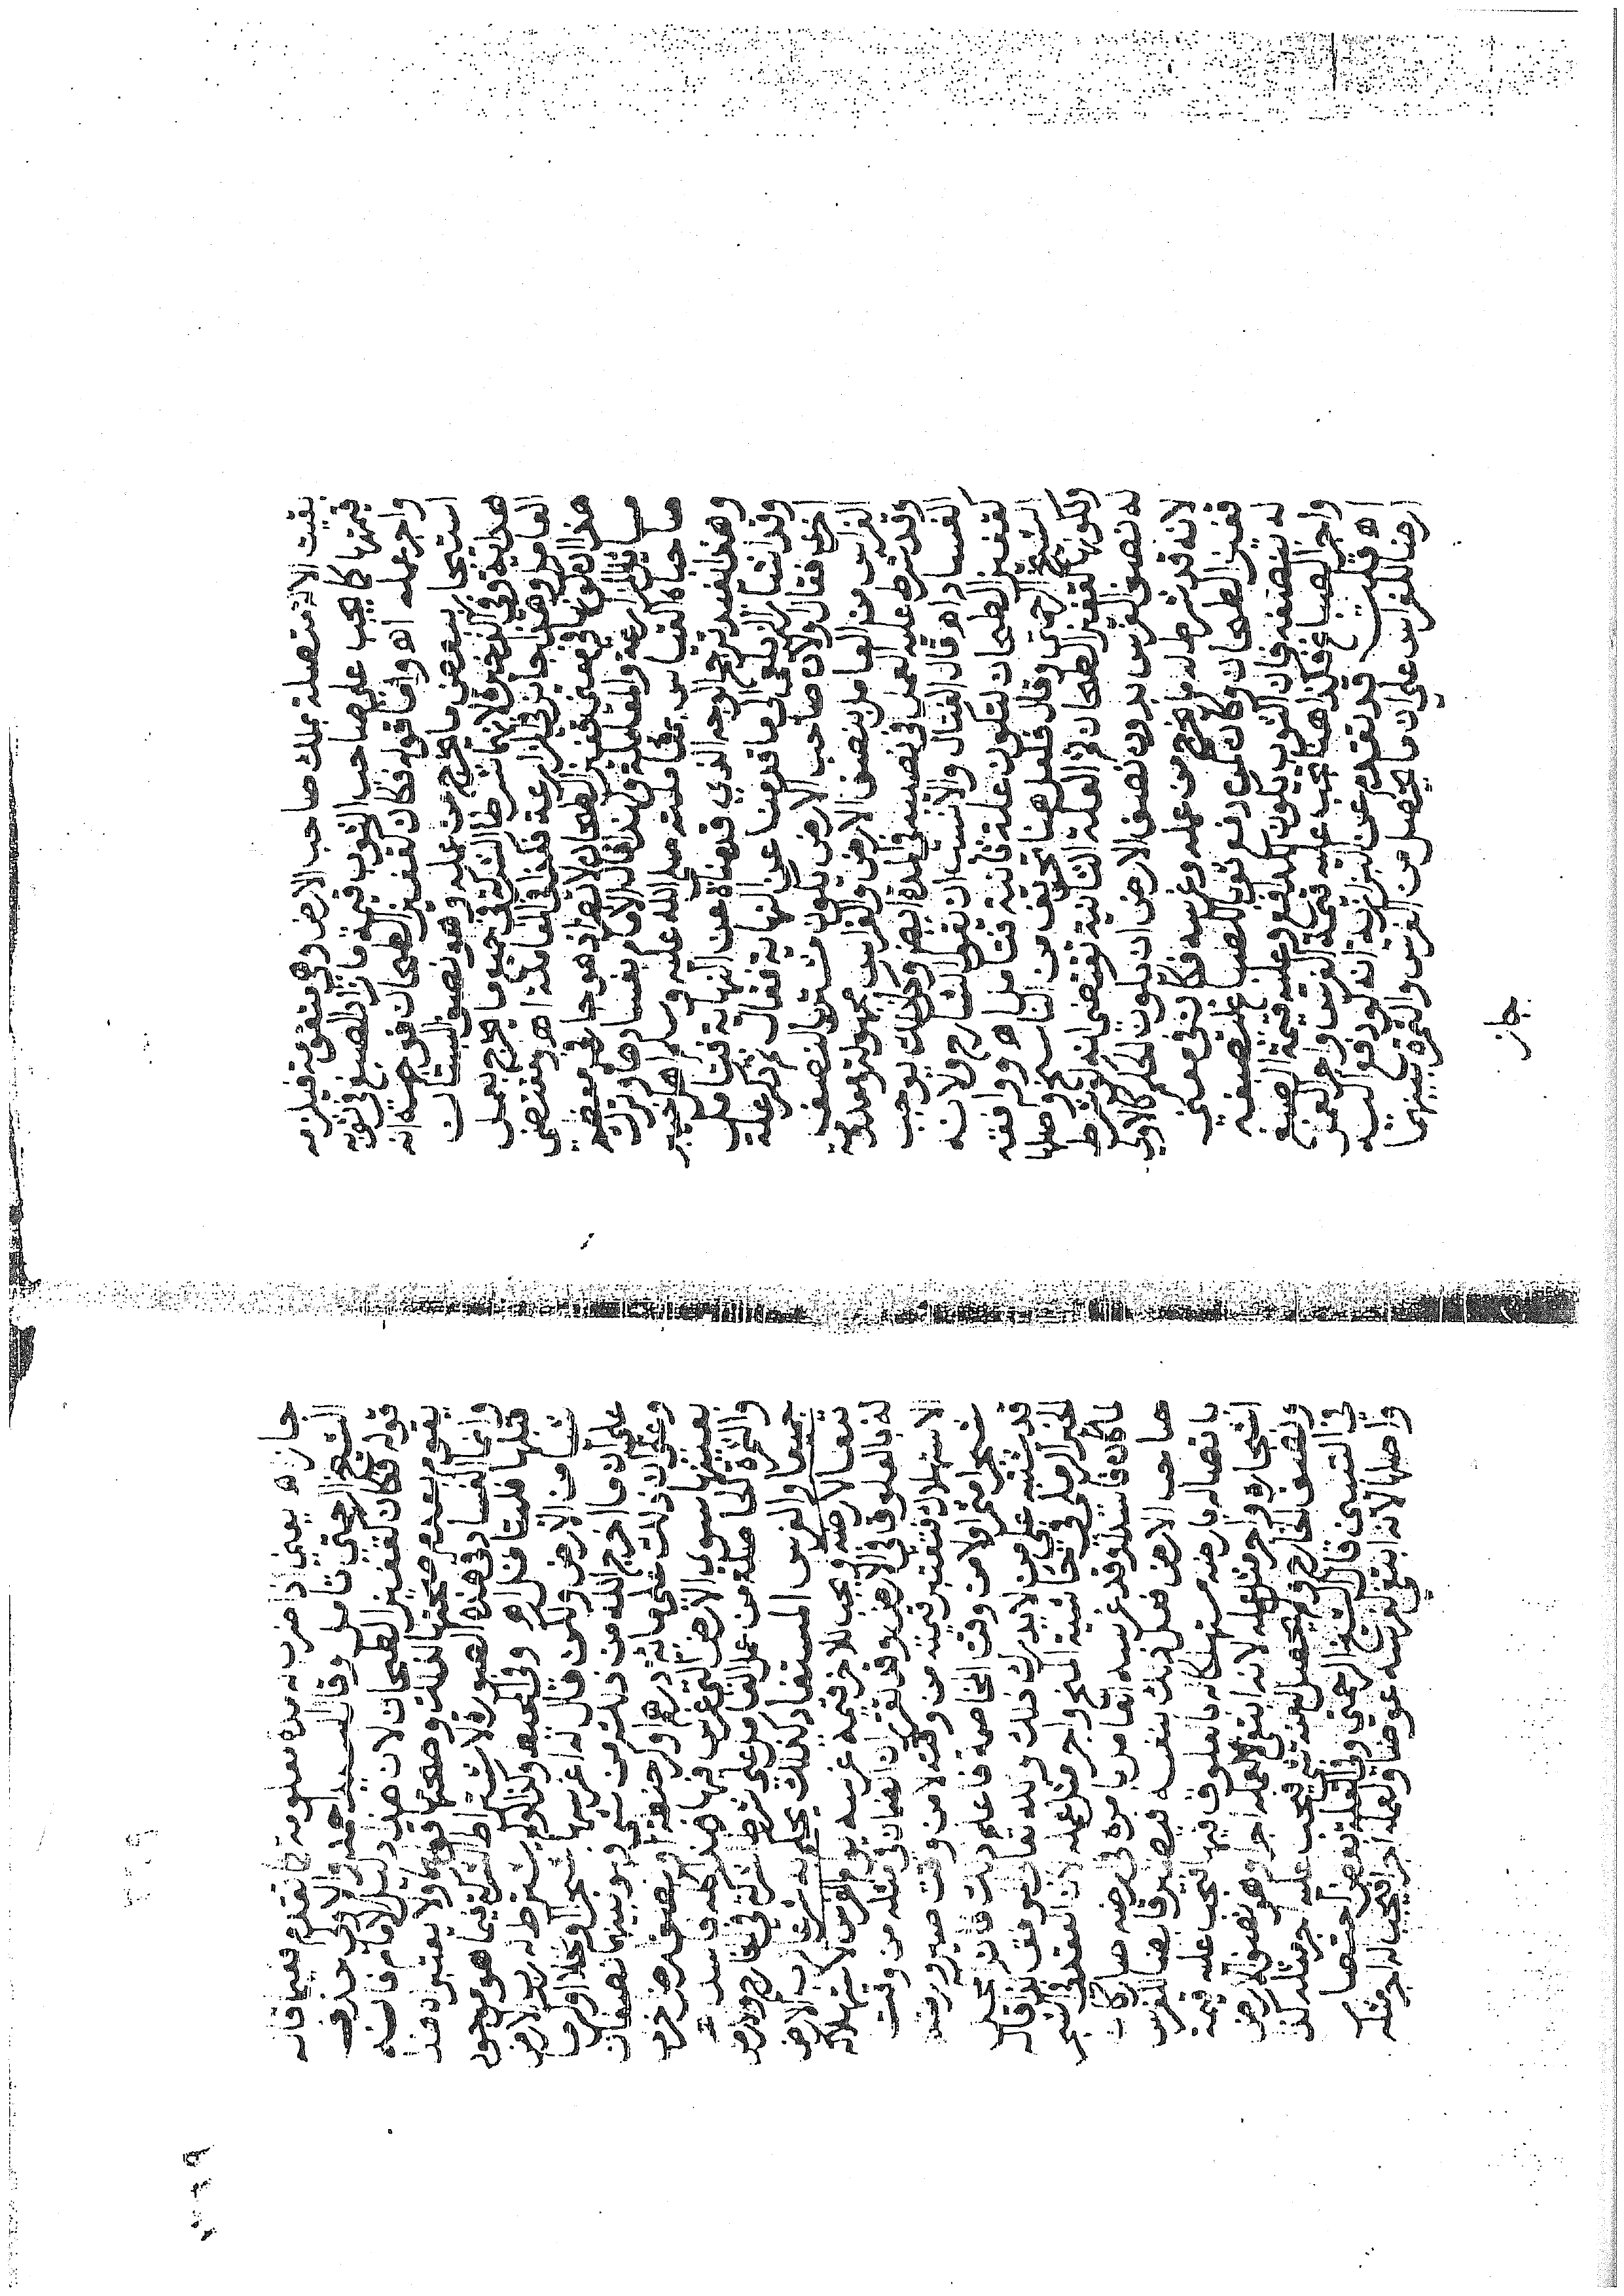 بقيت الآلة متصلة بملك صاحب الارض وهي متقومة فيلزمه
قيمتها كما يجب على صاحب الثوب قيمة ما زاد الصبغ في ثوبه
واجر عمله اهـ واما قوله فكان كقفيز الطحان فوجهه انه
استئجار ببعض ما يخرج من عمله وهو نصف البستان
هداية وفي الذخيرة لانهما شرطا الشركة في جميع ما يخرج بعمل
العامل وهذا جائز في المزارعة فكذا في المعاملة اهـ ومقتضى
هذا ان يكون ما في معنى قفيز الطحان لا يضر اذ هو جار في معظم
مسائل المزارعة والمعاملة ولهذا قال الامام بفسادهما وترك
صاحباه القياس بمعاملته صلى الله عليه وسلم اهل خيبر
وهذا يفيد ترجيح الوجه الذي قدمناه عن النهاية فتأمل
وقد اشار الزيلعي الى ما قدمنا عن النهاية فقال ثم ذكر علة
اخرى فقال ولان صاحب الارض يكون مشتريا لنصف
الغراس من العامل بنصف الارض والغراس مجهولة معدومة
وقد شرط عليه العمل في نصيبه في المدة ايضا وكل ذلك يوجب
الفساد اهـ قال الفتال والانسب ان تقول الشارح ولانه
كقفيز الطحان لتكون علة ثانية فتأمل اهـ ووافقه
الشيخ الرحمتي وقال فلعل هنا تحريف من الناسخ واصلها
ولكونها كقفيز الطحان اذ العلة الثانية تقتضي انه لو شرط
له نصف الغرس بدون نصف الارض ان يكون الحكم كالاول
لانه قد شرط له ما يخرج من عمله وغرسه فكان في معنى
قفيز الطحان وكان كمن دفع ثوبا لصباغ ليصبغه
له بنصفه فان الثوب يكون للدافع وعليه قيمة الصبغ
واجر الصباغ فكذا هنا يجب عليه قيمة الغرس واجر العمل
اهـ قلت قد تقدم عن البزازية انه لو دفع اليه
ارضا للغراس على ان ما يحصل من الغرس والثمرة بينهما
جاز
جاز هـ يعني اذا ضرب له مدة معلومة كما تقدم
الشيخ الرحمتي تأمل وقال السيد احمد والاولى حذف
قوله فكان كقفيز الطحان لان هذا دليل الامام فانه
يقول بعدم صحتها لذلك
وانما الفساد في هذه الصورة لاشتراط الشركة فيما هو موجود
قبلها فليتأمل اهـ وفي المحيط ولذا لو لم يشترط له رب الارض
شيأ من الارض ولكن قال له اغرسها شجرا او نخلا او كرما
على ان ما اخرج الله من ذلك من شيء فهو بيننا نصفان
وعلى ان ذلك علي مائة درهم او كر حنطة او نصف ارض اخرى
بعينها سوى الارض التي غرس فيها هذا كله فاسد
والثمرة الحاصلة من عمل العامل على شرط الشركة في الخارج والارض
جميعا والغرس المستفاد كذلك يحكم به شرعا لرب الارض
تبعا لارضه ويجب للآخر قيمة غرسه يوم الغرس لاستهلاكه
له بالعلوق في الارض وقد تقرر ان الضمان في مثله من وقت
الاستهلاك فتعتبر قيمته من وقته لا من وقت صيرورته
شجرا مثمرا ولا من وقت المخاصمة فاعلم ذلك فانه محل
قد يشتبه على من لا يدرك ذلك والله تعالى الموفق كذا قاله
الخير الرملي في حاشية المنح واجر مثل عمله لان العقد في الشجر
لما كان فاسدا وقد غرسه العامل بامره في ارضه صار كأن
صاحب الارض فعل ذلك بنفسه فيصير قابضا للغرس
باتصاله بارضه مستهلكا له بالعلوق فيها فيجب عليه قيمة
اشجاره واجر مثل عمله لانه ابتغى لعمله اجرا وهو نصف الارض
ونصف الخارج ولم يحصل له منه شيء فيجب عليه اجر مثله كذا
في التبيين قال الشيخ الرحمتي وفي العلة بعض اختصار
واصلها لانه ابتغى لغرسه عوضا ولعمله اجرا فيجب له اجر مثله